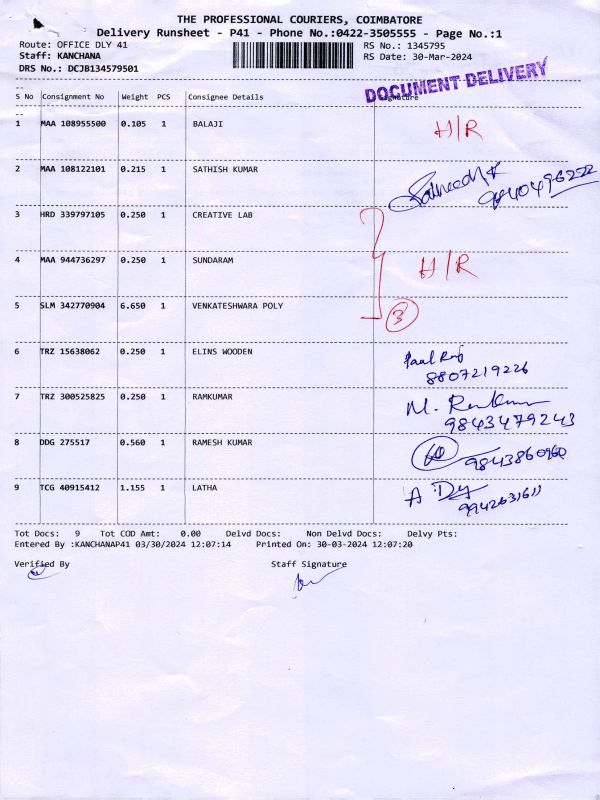 THE PROFESSIONAL COURIERS, COIMBATORE
Delivery Runsheet - P41 - Phone No.:0422-3505555 - Page No.:1
Route: OFFICE DLY 41 RS No.: 1345795
Staff: KANCHANA RS Date: 30-Mar-2024
DRS No.: DCJB134579501
DOCUMENT DELIVERY
S No Consignment No Weight PCS Consignee Details Signature
1 MAA 108955500 0.105 1 BALAJI H/R
2 MAA 108122101 0.215 1 SATHISH KUMAR
9840496222
3 HRD 339797105 0.250 1 CREATIVE LAB
4 MAA 944736297 0.250 1 SUNDARAM H/R
5 SLM 342770904 6.650 1 VENKATESHWARA POLY 3
6 TRZ 15638062 0.250 1 ELINS WOODEN Paul
8807219226
7 TRZ 300525825 0.250 1 RAMKUMAR M.
9843479243
8 DDG 275517 0.560 1 RAMESH KUMAR
9843860960
9 TCG 40915412 1.155 1 LATHA A
9942631611
Tot Docs: 9 Tot COD Amt: 0.00 Delvd Docs: Non Delvd Docs: Delvy Pts:
Entered By :KANCHANAP41 03/30/2024 12:07:14 Printed On: 30-03-2024 12:07:20
Verified By Staff Signature